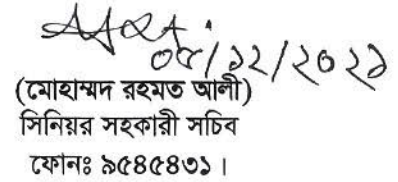 ০৫/১২/২০২১
(মোহাম্মদ রহমত আলী)
সিনিয়র সহকারী সচিব
ফোনঃ ৯৫৪৫৪৩১।